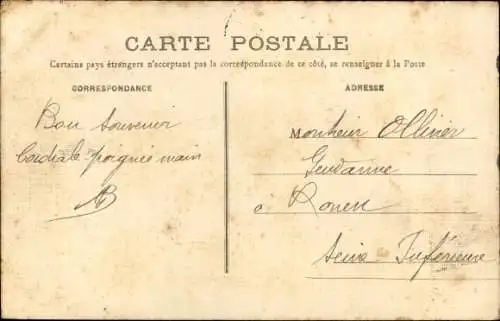 CARTE POSTALE
Certains pays étrangers n'acceptant pas la correspondance de ce côté, se renseigner à la Poste
CORRESPONDANCE
Bon souvenir
Cordiale poignée main
AB
ADRESSE
Monsieur Ollivier
Gendarme
à Rouen
Seine Inférieure